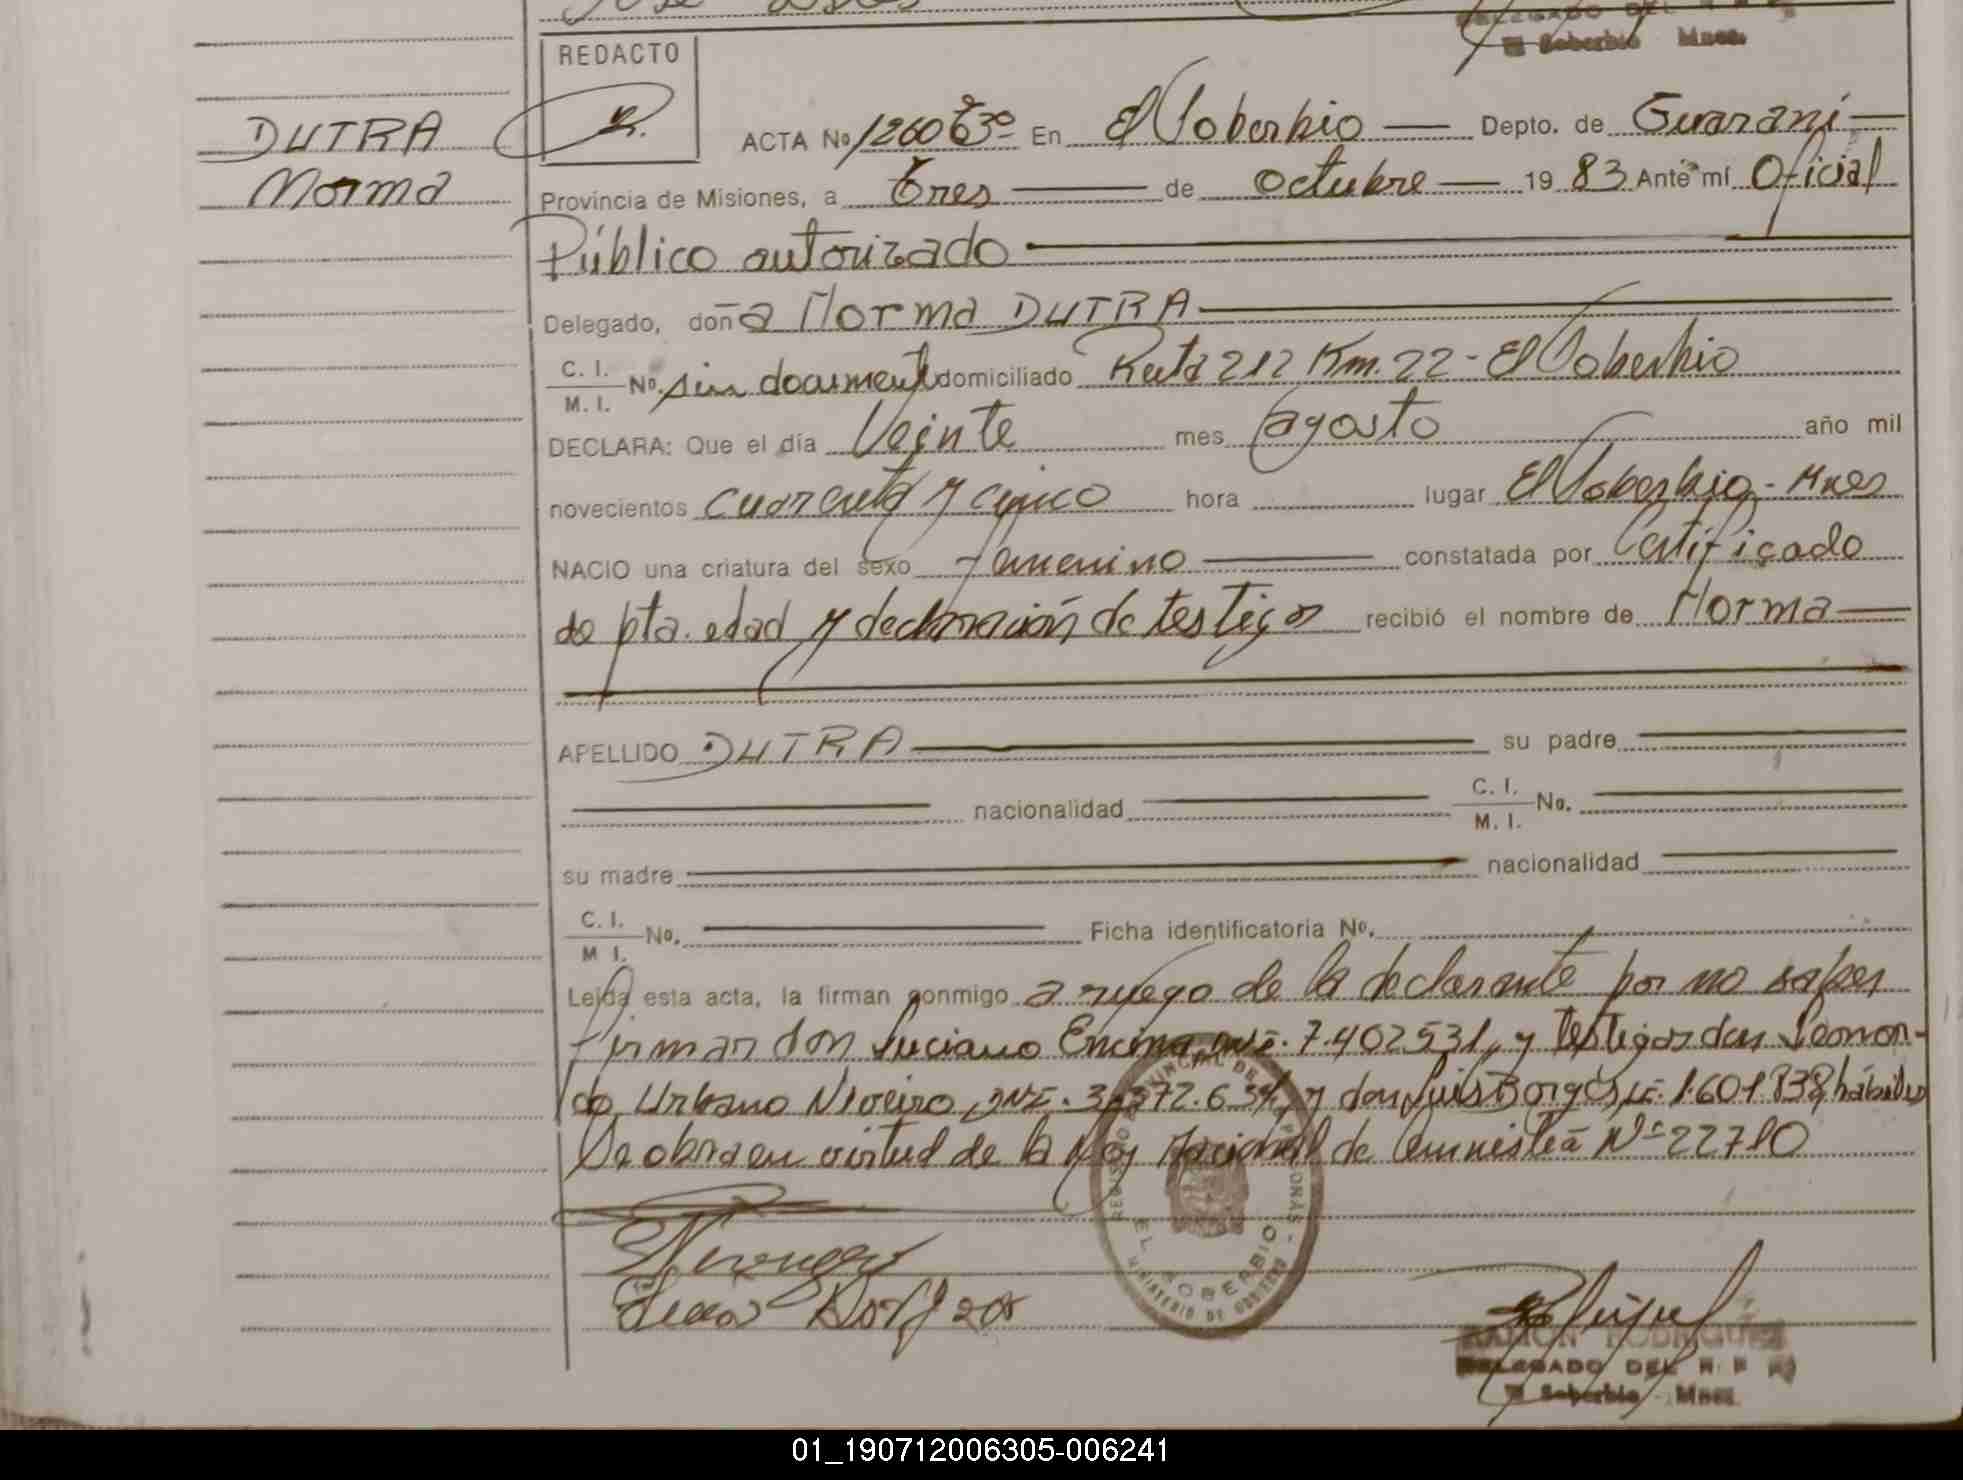 REDACTO
DELEGADO DEL R P P
El Soberbio Mnes.
DUTRA
Norma
ACTA No 1260 Tº 3º En El Soberbio Depto. de Guaraní
Provincia de Misiones, a Tres de octubre 19 83 Ante mí Oficial
Público autorizado
Delegado, doña Norma DUTRA
C. I.
M. I. No. sin document domiciliado Ruta 212 Km. 22 - El Soberbio
DECLARA: Que el día Veinte mes agosto año mil
novecientos cuarenta y cinco hora lugar El Soberbio - Mnes
NACIO una criatura del sexo femenino constatada por Certificado
de pta. edad y declaración de testigos recibió el nombre de Norma
APELLIDO DUTRA su padre
nacionalidad C. I.
M. I. No.
su madre nacionalidad
C. I.
M I. No. Ficha identificatoria No.
Leída esta acta, la firman conmigo a ruego de la declarante por no saber
firmar don Luciano Encina, M.I. 7.402531, y testigos don Leonor-
do Urbano Niveiro, M.I. 3.372.634, y don Luis Borges, L.E. 1.601.838, hábiles
Se obra en virtud de la Ley Nacional de Amnistía Nº 22710
REGISTRO PROVINCIAL DE LAS PERSONAS - EL SOBERBIO
MINISTERIO DE GOBIERNO
RAMON RODRIGUEZ
DELEGADO DEL R P P
El Soberbio - Mnes.
01_190712006305-006241